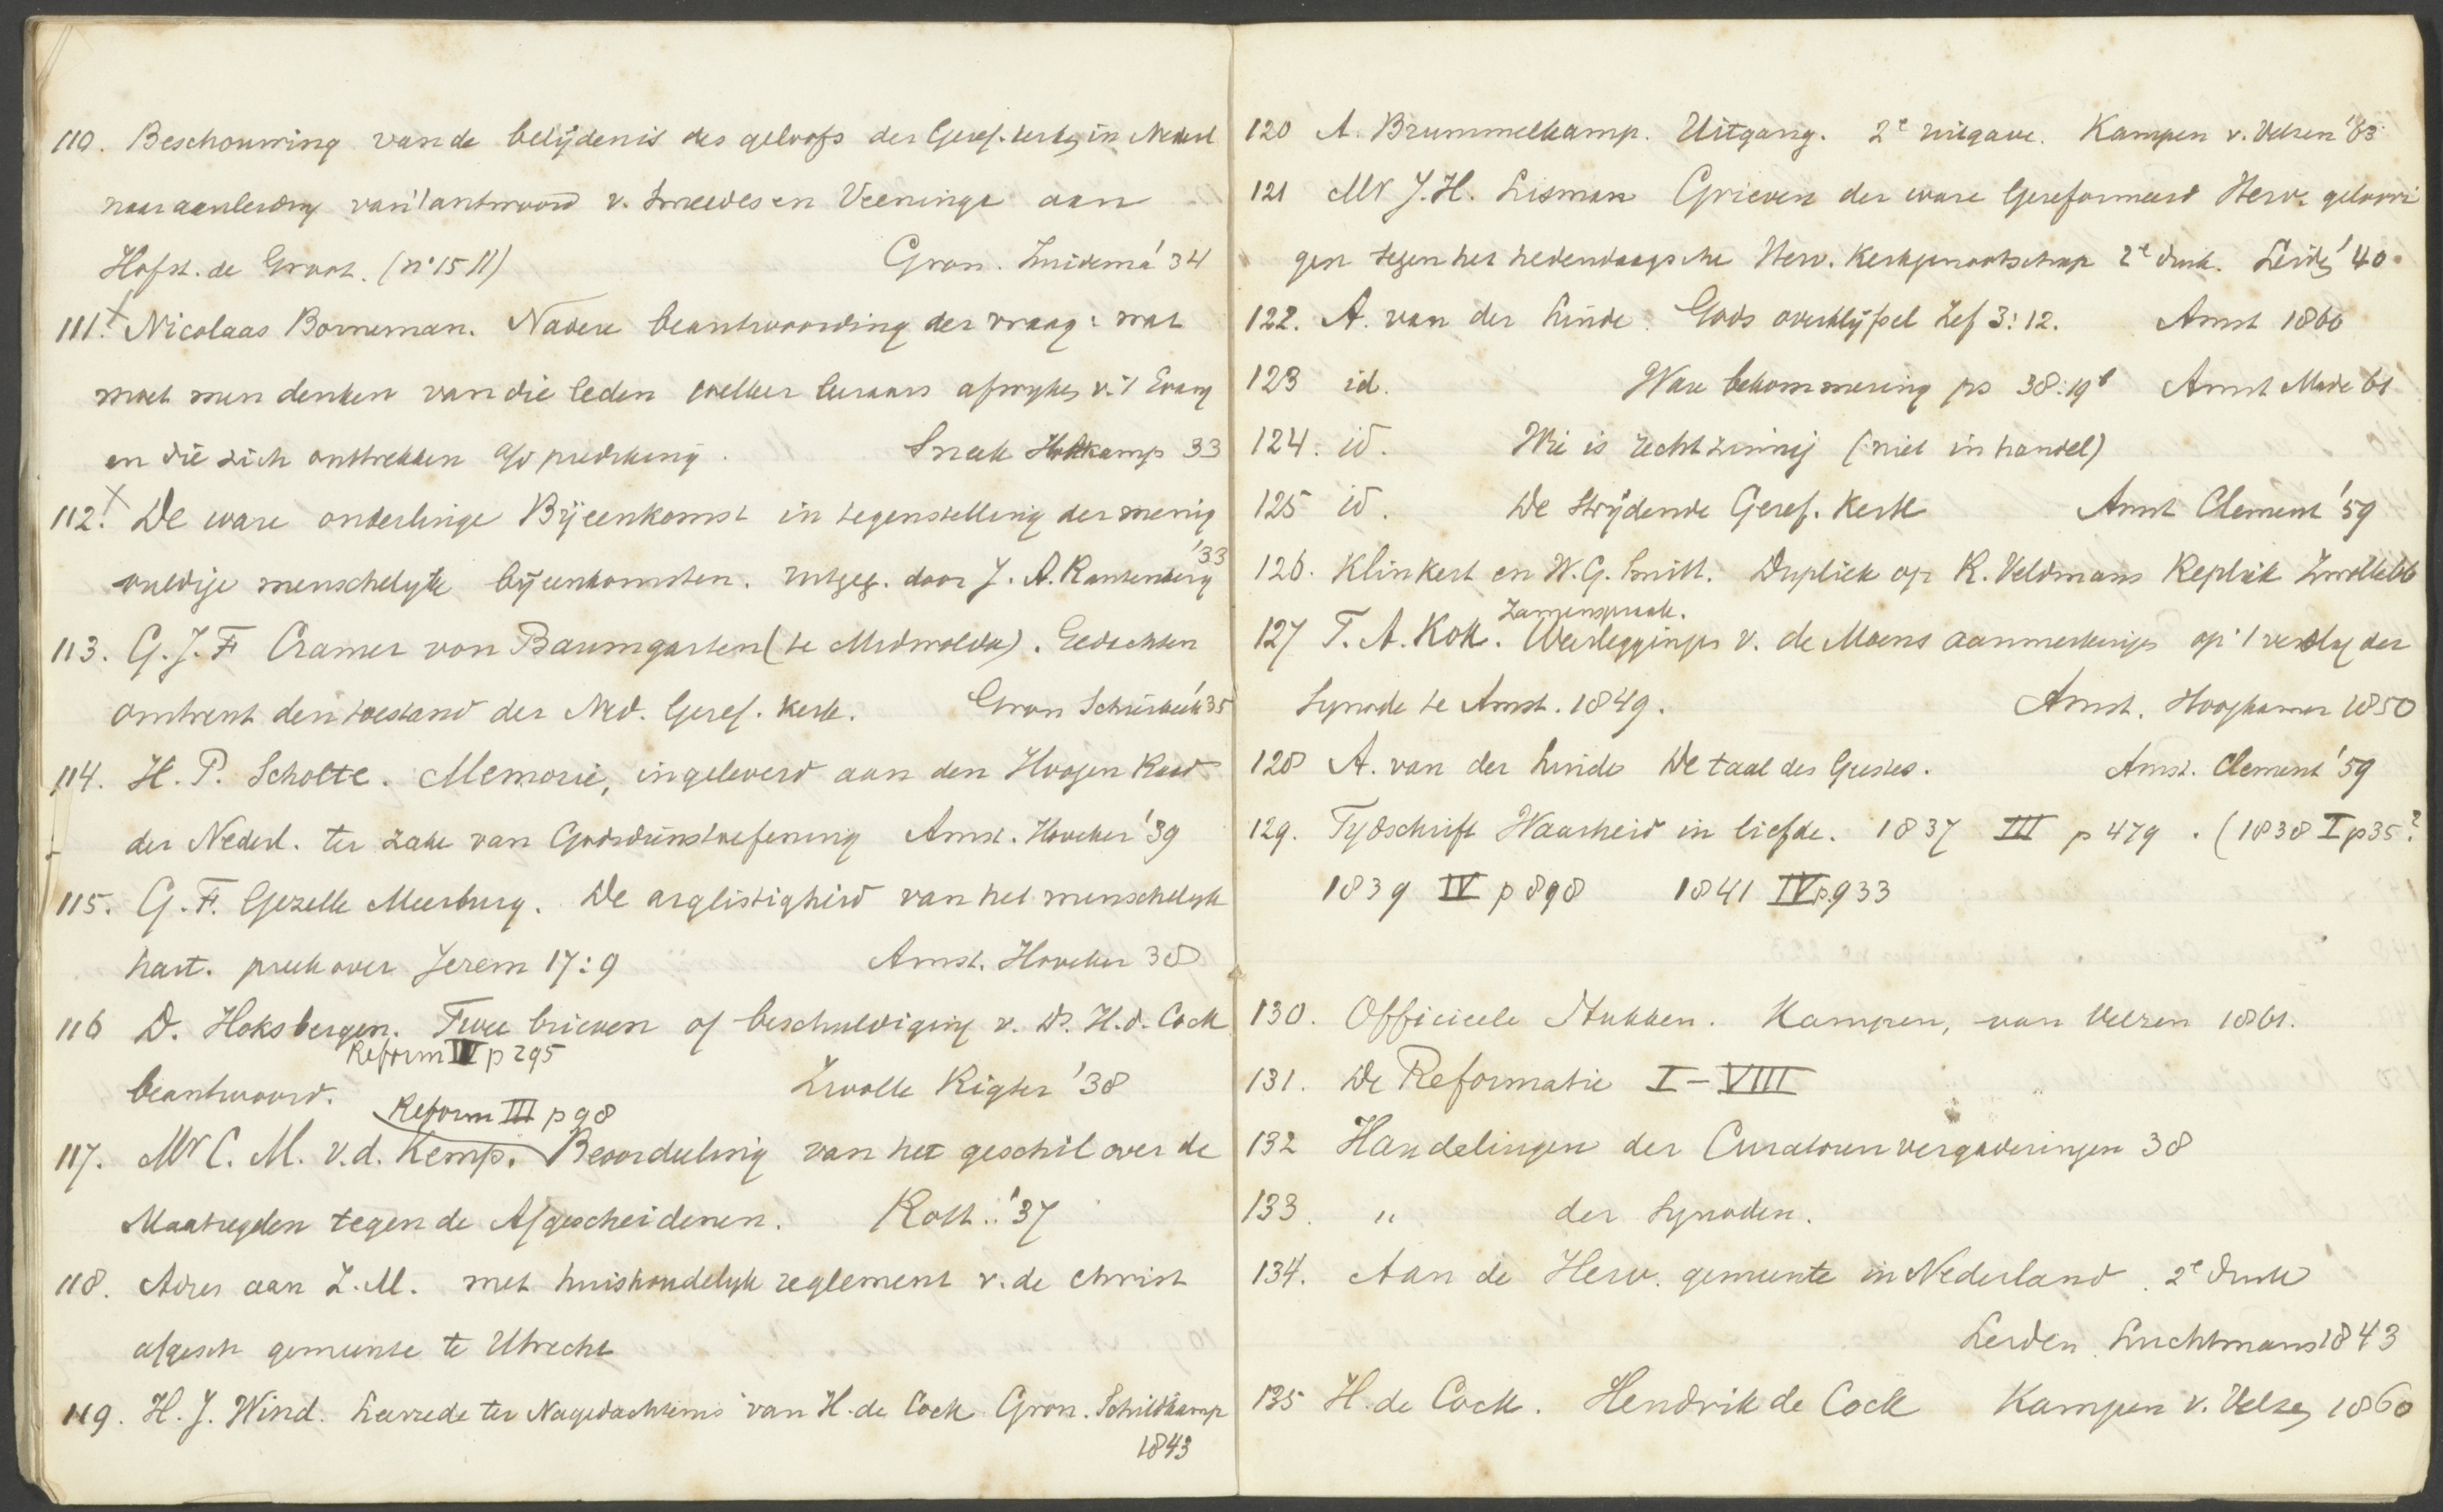 110. Beschouwing van de belijdenis des geloofs der Geref. kerk in Nederl
naar aanleiding van 't antwoord v. Smeedes en Veeninga aan
Hofst. de Groot. (n° 15 11)   Gron. Zuidema '34
111. Nicolaas Borneman. Nadere beantwoording der vraag: wat
moet men denken van die leden welker leraars afwyken v. 't Evang
en die zich onttrekken a/d prediking.   Sneek Holtkamp 33
112. De ware onderlinge Bijeenkomst in tegenstelling der menig
vuldige menschelyke bijeenkomsten. uitgeg. door J. A. Rautenberg '33
113. G. J. F. Cramer von Baumgarten (te Midwolda). Gedachten
omtrent den toestand der Ned. Geref. kerk.   Gron Schierbeek '35
114. H. P. Scholte. Memorie, ingeleverd aan den Hoogen Raad
der Nederl. ter zake van Godsdienstoefening   Amst. Höveker '39
115. G. F. Gezelle Meerburg. De arglistigheid van het menschelyk
hart. preek over Jerem 17:9   Amst. Hoveker 38
116 D. Hoksbergen. Twee brieven of beschuldiging v. Ds. H. d. Cock
Reform IV p 295
beantwoord.   Zwolle Rigter '38
Reform III p 98
117. Mr C. M. v.d. Kemp. Beoordeeling van het geschil over de
Maatregelen tegen de Afgescheidenen.   Rott. '37
118. Adres aan Z. M. met huishoudelyk reglement v. de christ
afgesch gemeente te Utrecht
119. H. J. Wind. Leerrede ter Nagedachtenis van H. de Cock Gron. Schildkamp
1843
120 A. Brummelkamp. Uitgang. 2e uitgave. Kampen v. Velzen '83
121 Mr J. H. Lisman Grieven der ware Gereformeerd Herv. geloovi
gen tegen het hedendaagsche Herv. Kerkgenootschap 2e druk. Leiden '40
122. A. van der Linde. Gods overblijfsel Zef 3:12.   Amst 1860
123 id.   Ware bekommering ps 38:19b   Amst Made 61
124. id.   Wie is rechtzinnig (niet in handel)
125 id.   De Strijdende Geref. Kerk   Amst Clement '59
126. Klinkert en W. G. Smitt. Dupliek op K. Veldmans Repliek Zwolle 66
Zamenspraak.
127 T. A. Kok. Wederlegginge v. de Moens aanmerkinge op 't verslag der
Synode te Amst. 1849.   Amst. Hoogkamer 1850
128 A. van der Linde De taal des Geestes.   Amst. Clement '59
129. Tydschrift Waarheid in liefde. 1837 III p 479. (1838 I p 35?
1839 IV p 898   1841 IV p. 933
130. Officieele Stukken. Kampen, van Velzen 1861.
131. De Reformatie I–VIII
132 Handelingen der Curatorenvergaderingen 38
133. " der Synoden.
134. Aan de Herv. gemeente in Nederland. 2e druk
Leiden Luchtmans 1843
135 H. de Cock. Hendrik de Cock Kampen v. Velzen 1860